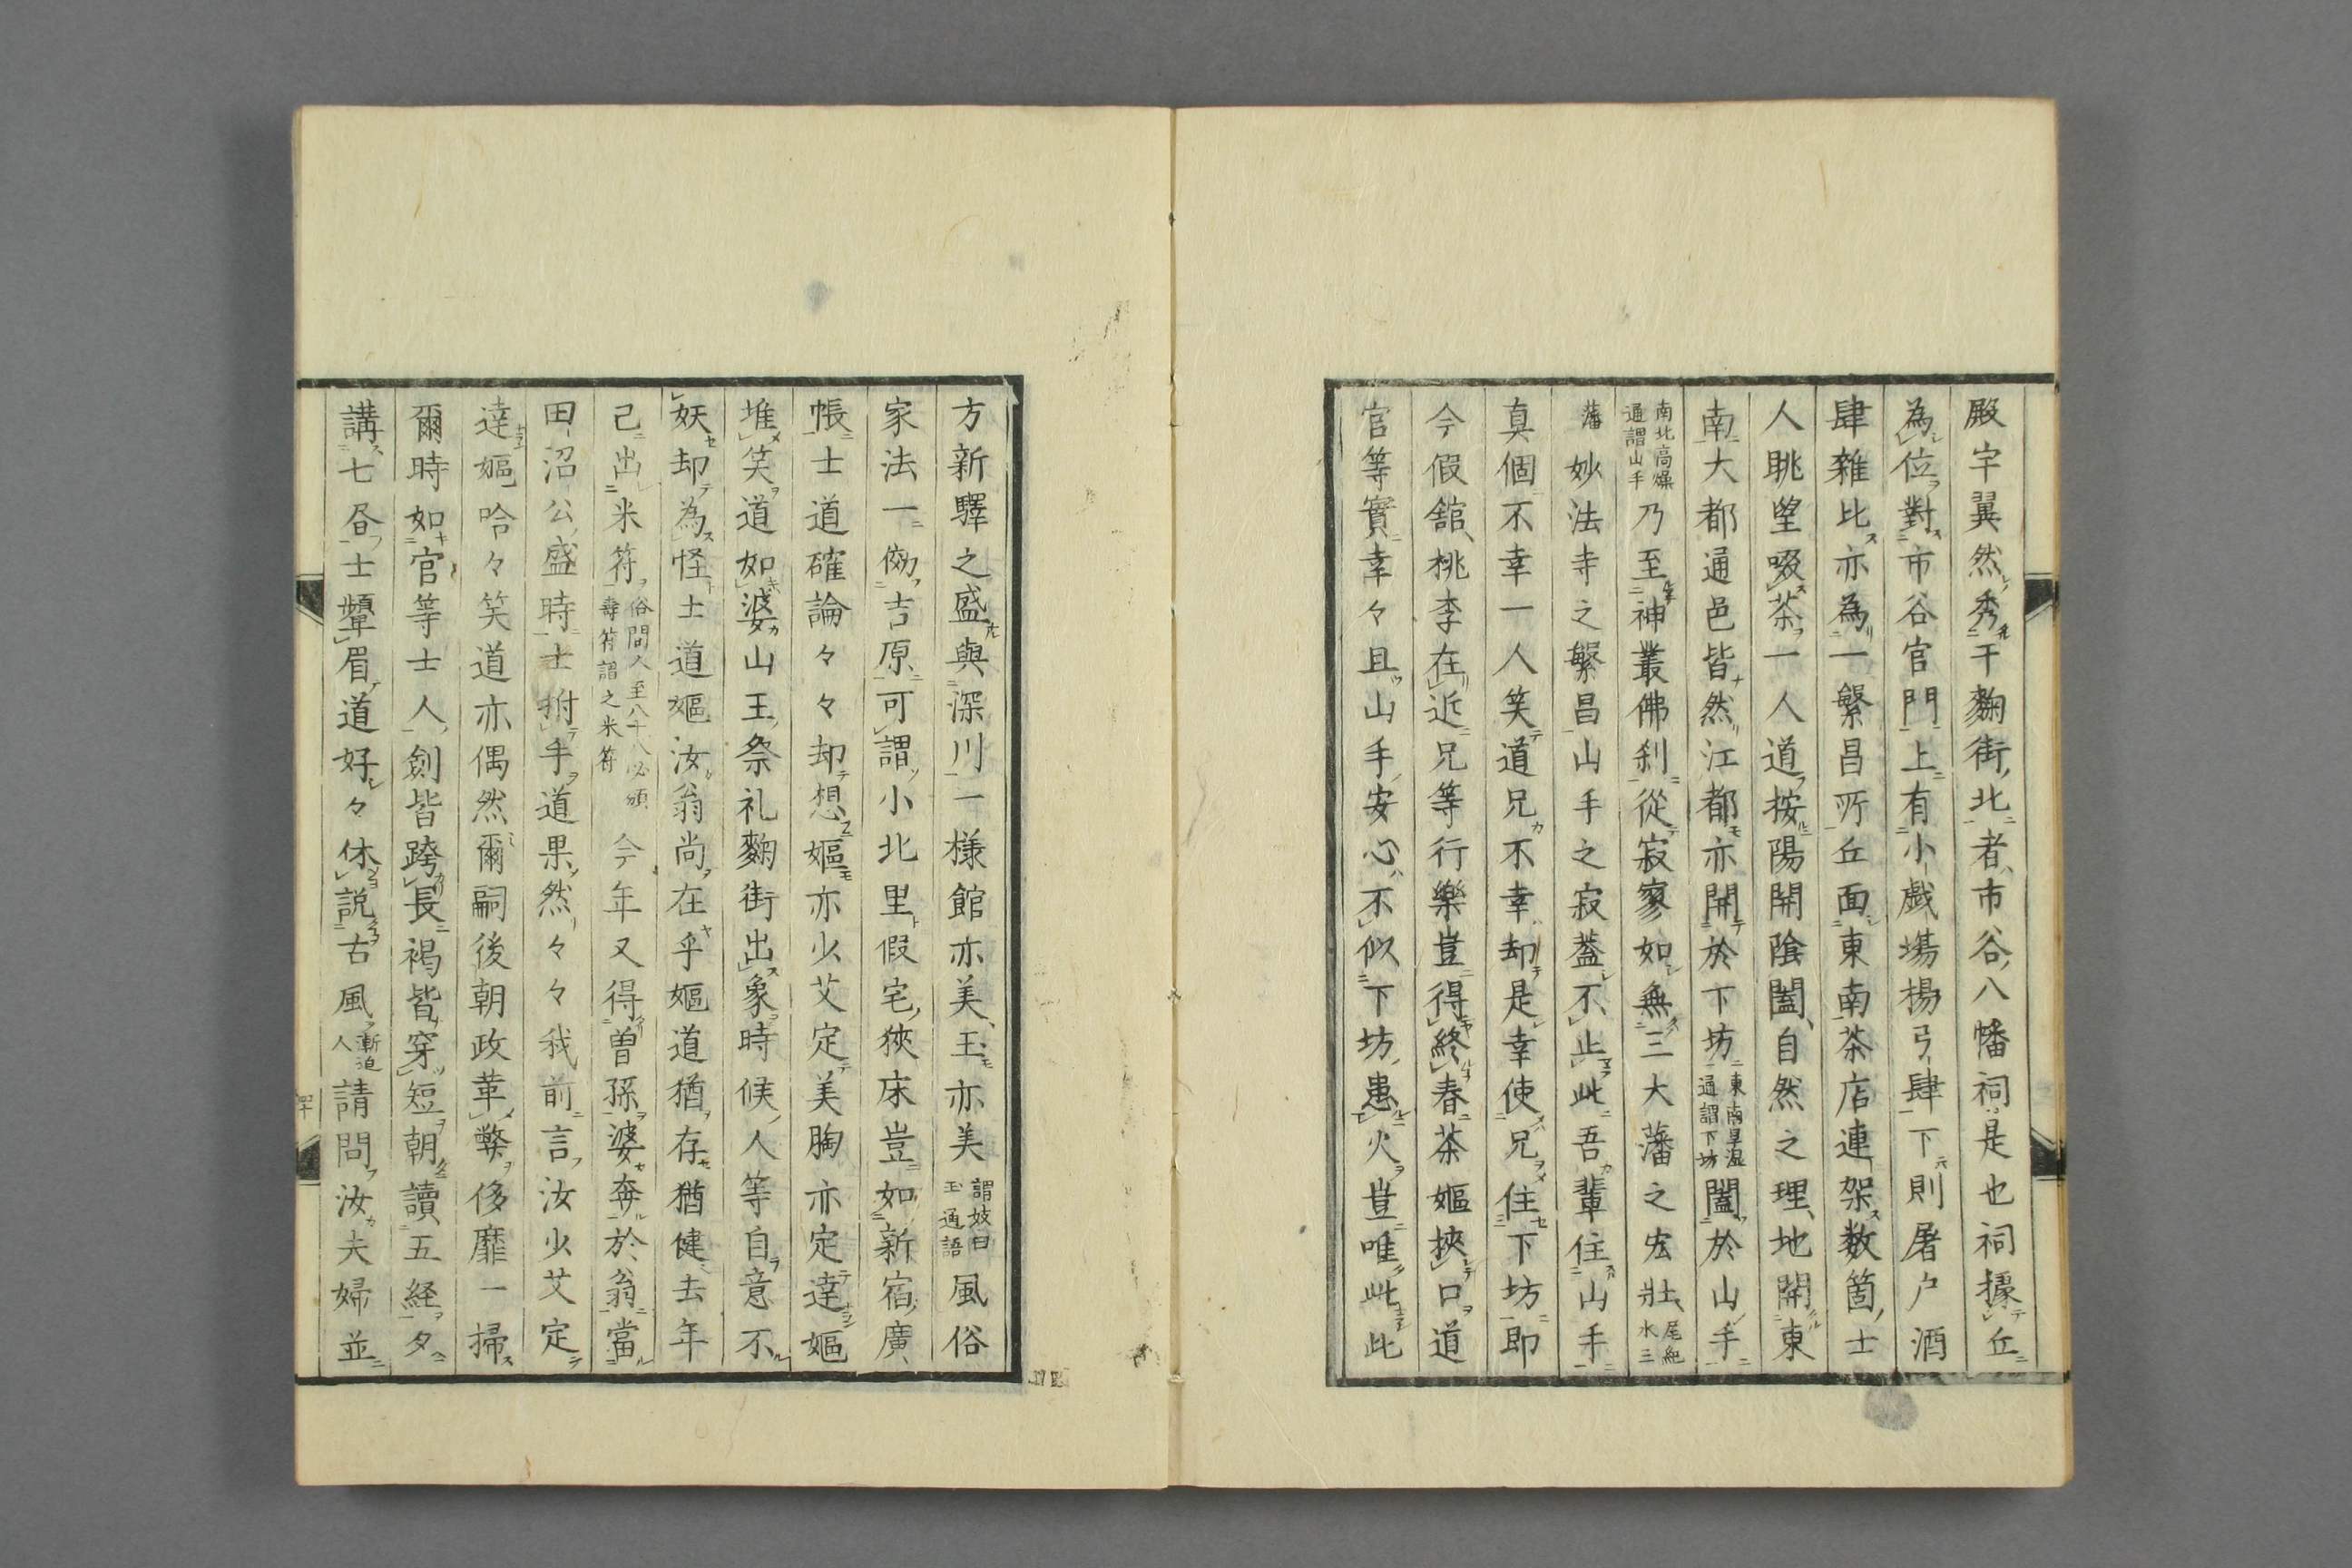 殿宇翼然秀于麴街北者市谷八幡祠是也祠據丘
為位對市谷官門上有小戯塲揚弓肆下則屠戸酒
肆雜比亦為一繁昌所丘面東南茶店連架数箇士
人眺望啜茶一人道按陽開陰闔自然之理地開東
南大都通邑皆然江都亦開於下坊東南卑濕通謂下坊闔於山手
南北高燥通謂山手乃至神叢佛刹從寂寥如無三大藩之宏壯尾紀水三
藩妙法寺之繁昌山手之寂蓋不止此吾輩住山手
真個不幸一人笑道兄不幸却是幸使兄住下坊即
今假舘桃李在近兄等行樂豈得終春茶嫗挾口道
官等實幸々且山手安心不似下坊患火豈唯此此
方新驛之盛與深川一様館亦美玉亦美謂妓曰玉通語風俗
家法一効吉原可謂小北里假宅狹床豈如新宿廣
帳士道確論々々却想嫗亦少艾定美胸亦定達嫗
堆笑道如婆山王祭礼麴街出象時候人等自意不
妖却為怪士道嫗汝翁尚在乎嫗道猶存猶健去年
已出米符俗間人至八十八必頒壽符謂之米符今年又得曽孫婆奔於翁當
田沼公盛時士拊手道果然々々我前言汝少艾定
達嫗唅々笑道亦偶然爾嗣後朝政革弊侈靡一掃
爾時如官等士人劍皆跨長褐皆穿短朝讀五経夕
講七昏士顰眉道好々休説古風漸迫人請問汝夫婦並
四十